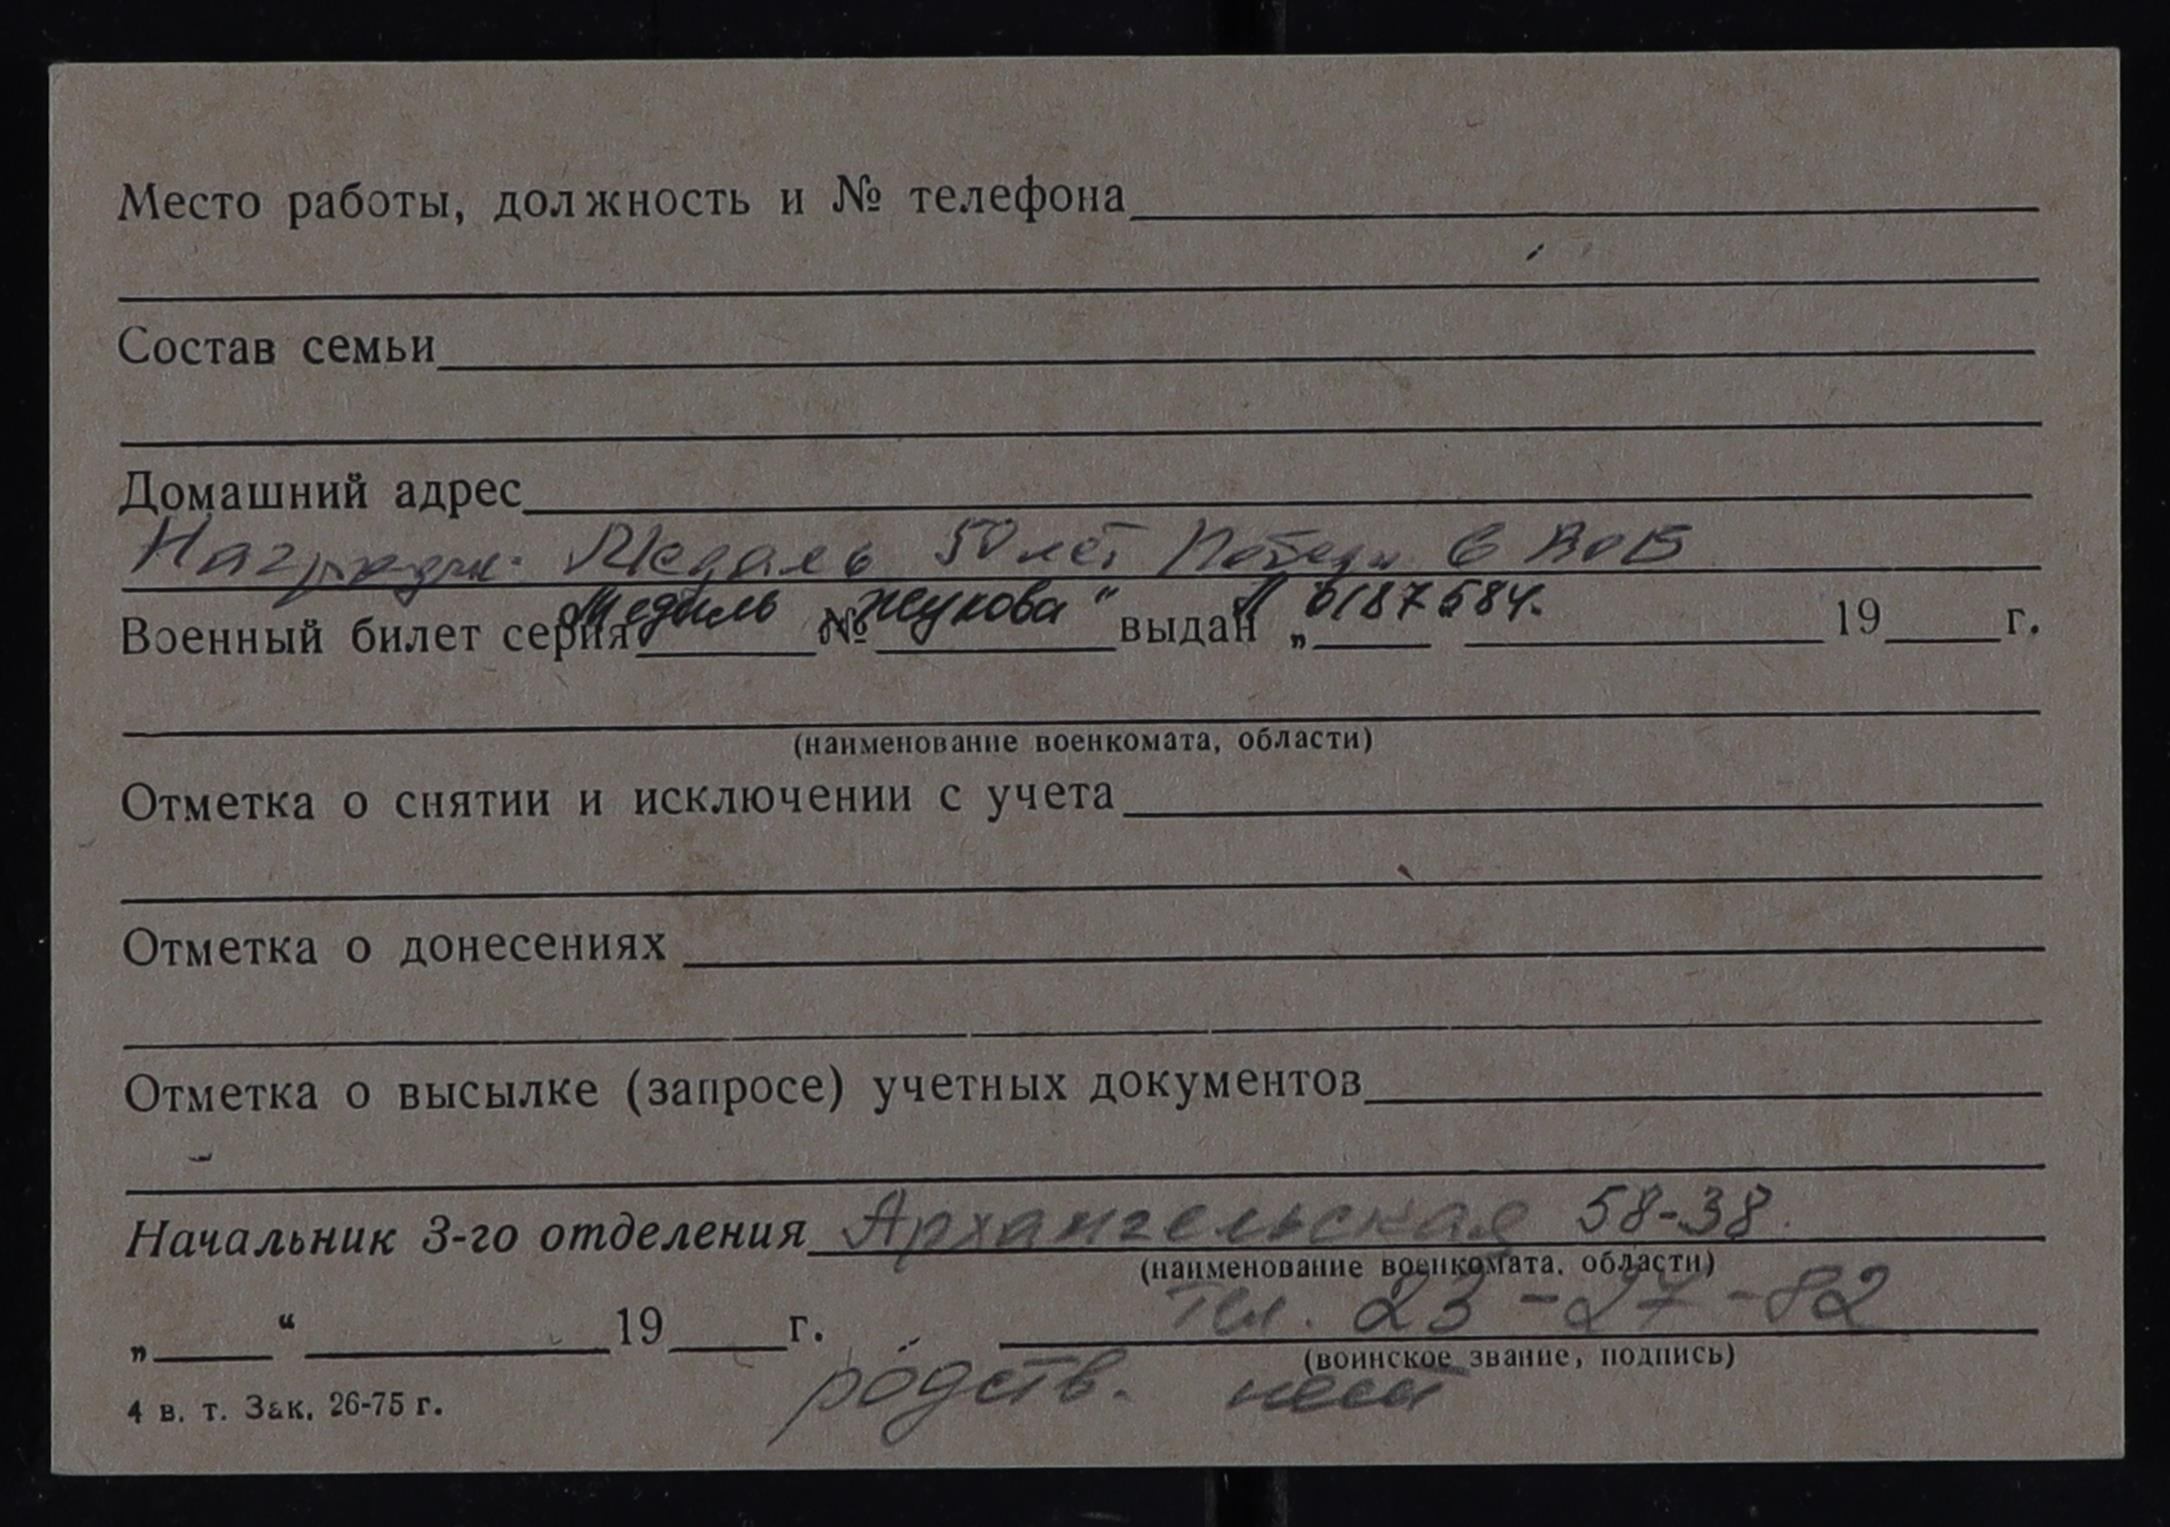 Место работы, должность и № телефона
Состав семьи
Домашний адрес
Награжден. Медаль 50 лет Победы в ВОВ
Медаль „Жукова“ А 0187584.
Военный билет серия № выдан „ 19 г.
(наименование военкомата, области)
Отметка о снятии и исключении с учета
Отметка о донесениях
Отметка о высылке (запросе) учетных документов
Начальник 3-го отделения Архангельская 58-38.
(наименование военкомата, области)
тел. 23-27-82
„ “ 19 г.
(воинское звание, подпись)
родств. нет
4 в. т. Зак. 26-75 г.